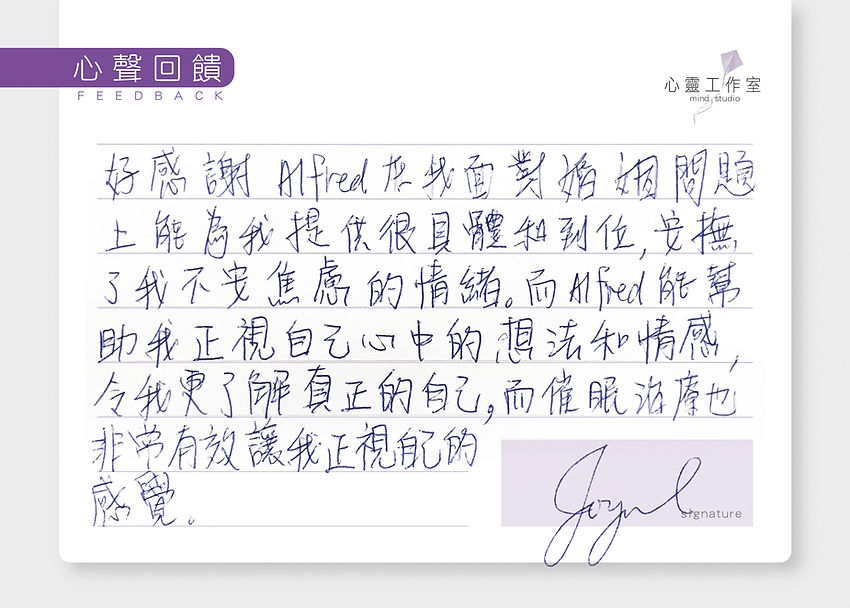 心聲回饋
FEEDBACK
心靈工作室
mind studio
好感謝 Alfred 在我面對婚姻問題
上能為我提供很具體和到位,安撫
了我不安焦慮的情緒。而Alfred能幫
助我正視自己心中的想法和情感,
令我更了解真正的自己,而催眠治療也
非常有效讓我正視自己的
感覺。
signature